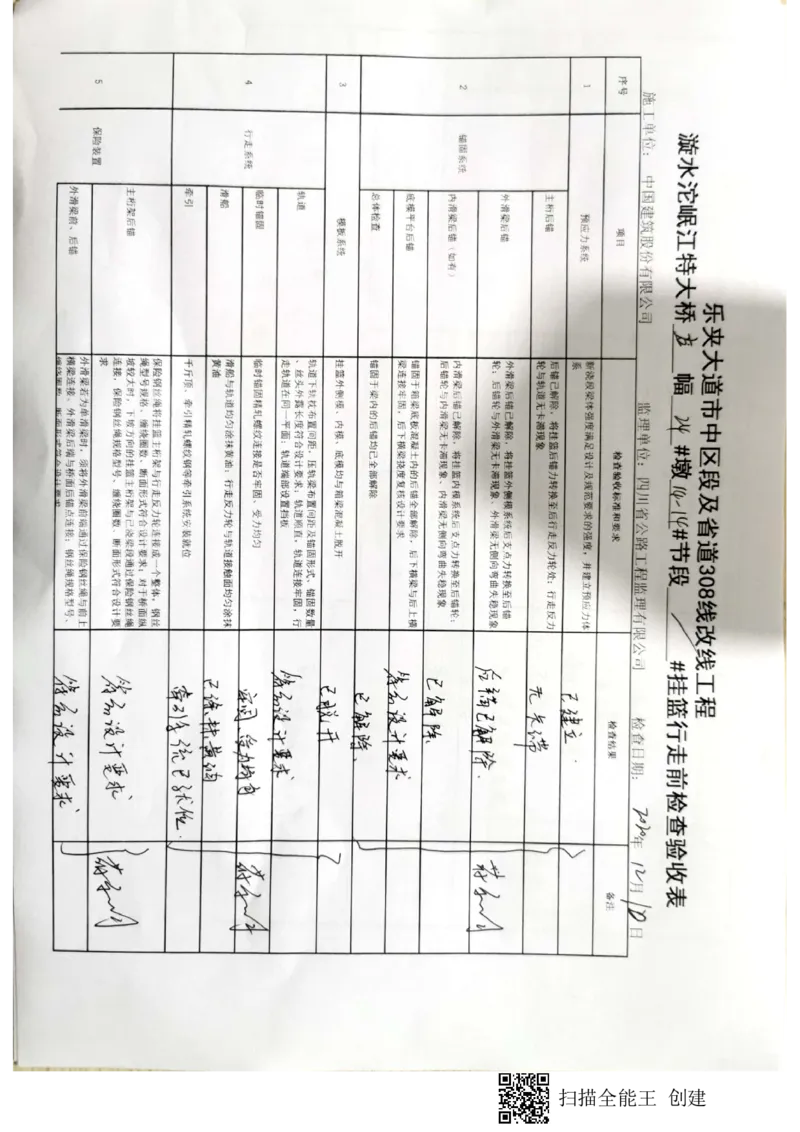 乐夹大道市中区段及省道308线改线工程
漩水沱岷江特大桥 右 幅 24 #墩 #节段 #挂篮行走前检查验收表
施工单位：中国建筑股份有限公司 监理单位：四川省公路工程监理有限公司 检查日期：2020年12月10日
序号 项目 检查验收标准和要求 检查结果 备注
1 预应力系统 新浇段梁体强度满足设计及规范要求的强度，并建立预应力体系 已建立.
2 锚固系统
主桁后锚 后锚已解除，将挂篮后锚力转换至后行走反力轮处；行走反力轮与轨道无卡滞现象 无卡滞
外滑梁后锚 外滑梁后锚已解除，将挂篮外侧模系统后支点力转换至后锚轮；后锚轮与外滑梁无卡滞现象、外滑梁无侧向弯曲失稳现象 后锚已解除.
内滑梁后锚（如有） 内滑梁后锚已解除，将挂篮内模系统后支点力转换至后锚轮；后锚轮与内滑梁无卡滞现象、内滑梁无侧向弯曲失稳现象 已解除.
底模平台后锚 锚固于箱梁底板混凝土内的后锚全部解除，后下横梁与后上横梁连接牢固，后下横梁挠度复核设计要求 符合设计要求
总体检查 锚固于梁内的后锚均已全部解除 已解除.
3 模板系统 挂篮外侧模、内模、底模均与箱梁混凝土脱开 已脱开
4 行走系统
轨道 轨道下轨枕布置间距，压轨梁布置间距及锚固形式，锚固数量、丝头外露长度符合设计要求；轨道顺直，轨道连接牢固，行走轨道在同一平面；轨道端部设置挡板 符合设计要求
临时锚固 临时锚固精轧螺纹连接是否牢固、受力均匀 牢固 受力均匀
滑船 滑船与轨道均匀涂抹黄油；行走反力轮与轨道接触面均匀涂抹黄油 已涂抹黄油
牵引 千斤顶、牵引精轧螺纹钢等牵引系统安装就位 牵引系统已就位.
5 保险装置
主桁架后锚 保险钢丝绳将挂篮主桁架与行走反力轮连接成一个整体，钢丝绳型号规格、缠绕圈数、断面形式符合设计要求；对于桥面纵坡较大时，下坡方向的挂篮主桁架与已浇梁段通过保险钢丝绳连接，保险钢丝绳规格型号、缠绕圈数、断面形式符合设计要求 符合设计要求
外滑梁前、后锚 外滑梁若为单滑梁时，须将外滑梁前端通过保险钢丝绳与前上横梁连接、外滑梁后端与桥面后锚点连接；钢丝绳规格型号、缠绕圈数、断面形式符合设计要求 符合设计要求
扫描全能王 创建